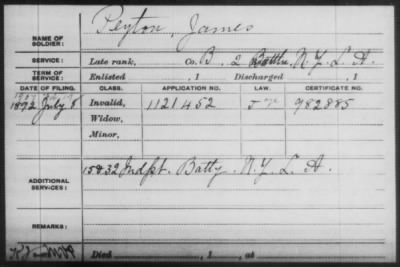 Peyton, James
NAME OF SOLDIER:
SERVICE: Late rank, Co. B, 2 Battn. N.Y. L. A.
TERM OF SERVICE: Enlisted , 1 Discharged , 1
DATE OF FILING. CLASS. APPLICATION NO. LAW. CERTIFICATE NO.
1892 July 8 Invalid, 1121452 982885
Widow,
Minor,
ADDITIONAL SERVICES: 15 & 32 Indpt. Batty. N.Y. L. A.
REMARKS:
Died , 1 , at